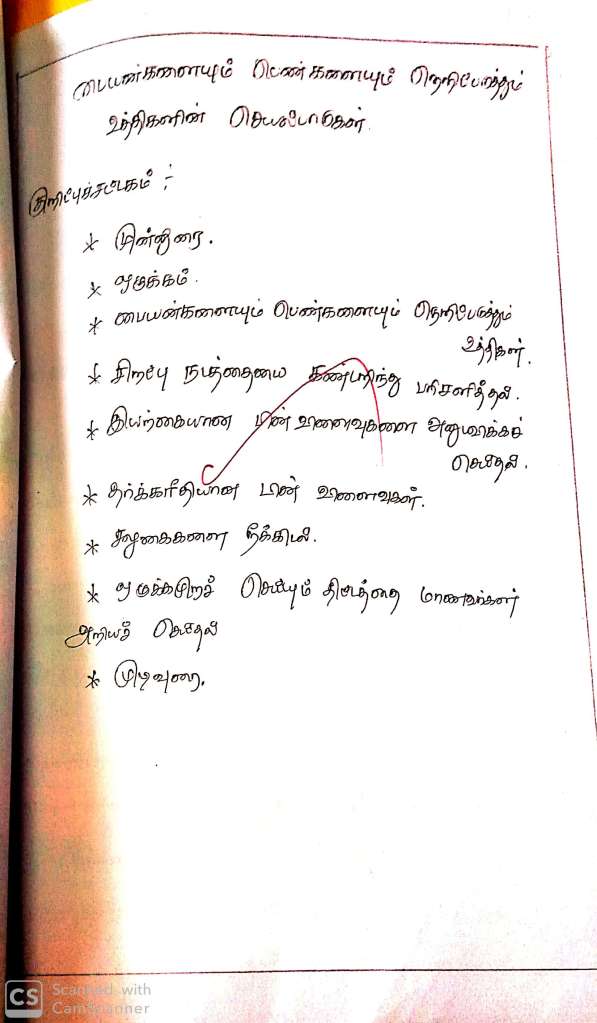 பையன்களையும் பெண்களையும் நெறிபடுத்தும்
உத்திகளின் செயல்பாடுகள்.
குறிப்புச்சட்டகம் :-
* முன்னுரை.
* ஒழுக்கம்.
* பையன்களையும் பெண்களையும் நெறிபடுத்தும்
உத்திகள்.
* சிறப்பு நடத்தையை கண்டறிந்து பரிசளித்தல்.
* இயற்கையான பின் விளைவுகளை அனுமதிக்கச்
செய்தல்.
* தர்க்கரீதியான பின் விளைவுகள்.
* சலுகைகளை நீக்கியல்.
* ஒழுக்கமுறச் செய்யும் திட்டத்தை மாணவர்கள்
அறியச் செய்தல்
* முடிவுரை.
CS Scanned with
CamScanner